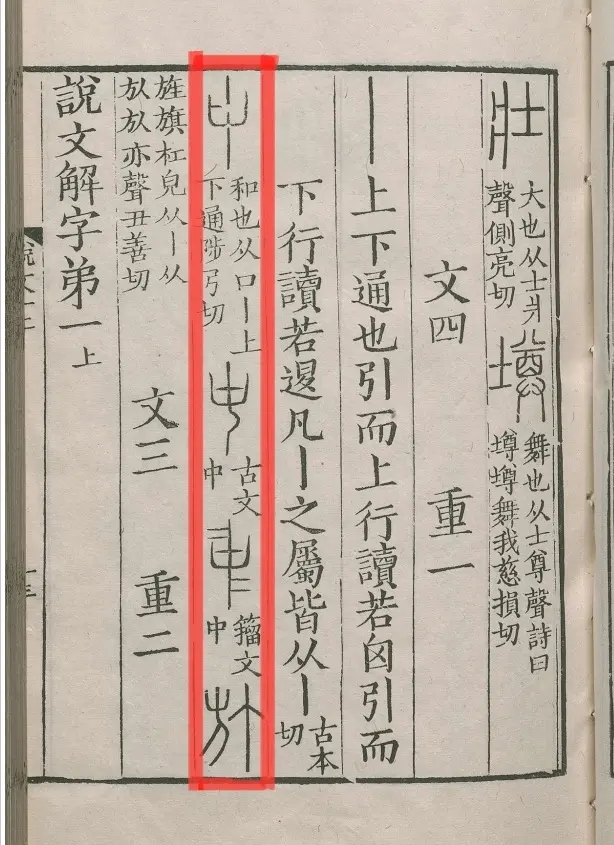 壯 大也从士爿聲側亮切 墫 舞也从士尊聲詩曰墫墫舞我慈損切
文四 重一
丨 上下通也引而上行讀若囟引而
下行讀若𨓤凡丨之屬皆从丨 古本切
中 和也从口丨上下通陟弓切 古文中 籒文中
旌旗杠皃从丨从㫃㫃亦聲丑善切 文三 重二
說文解字弟一上